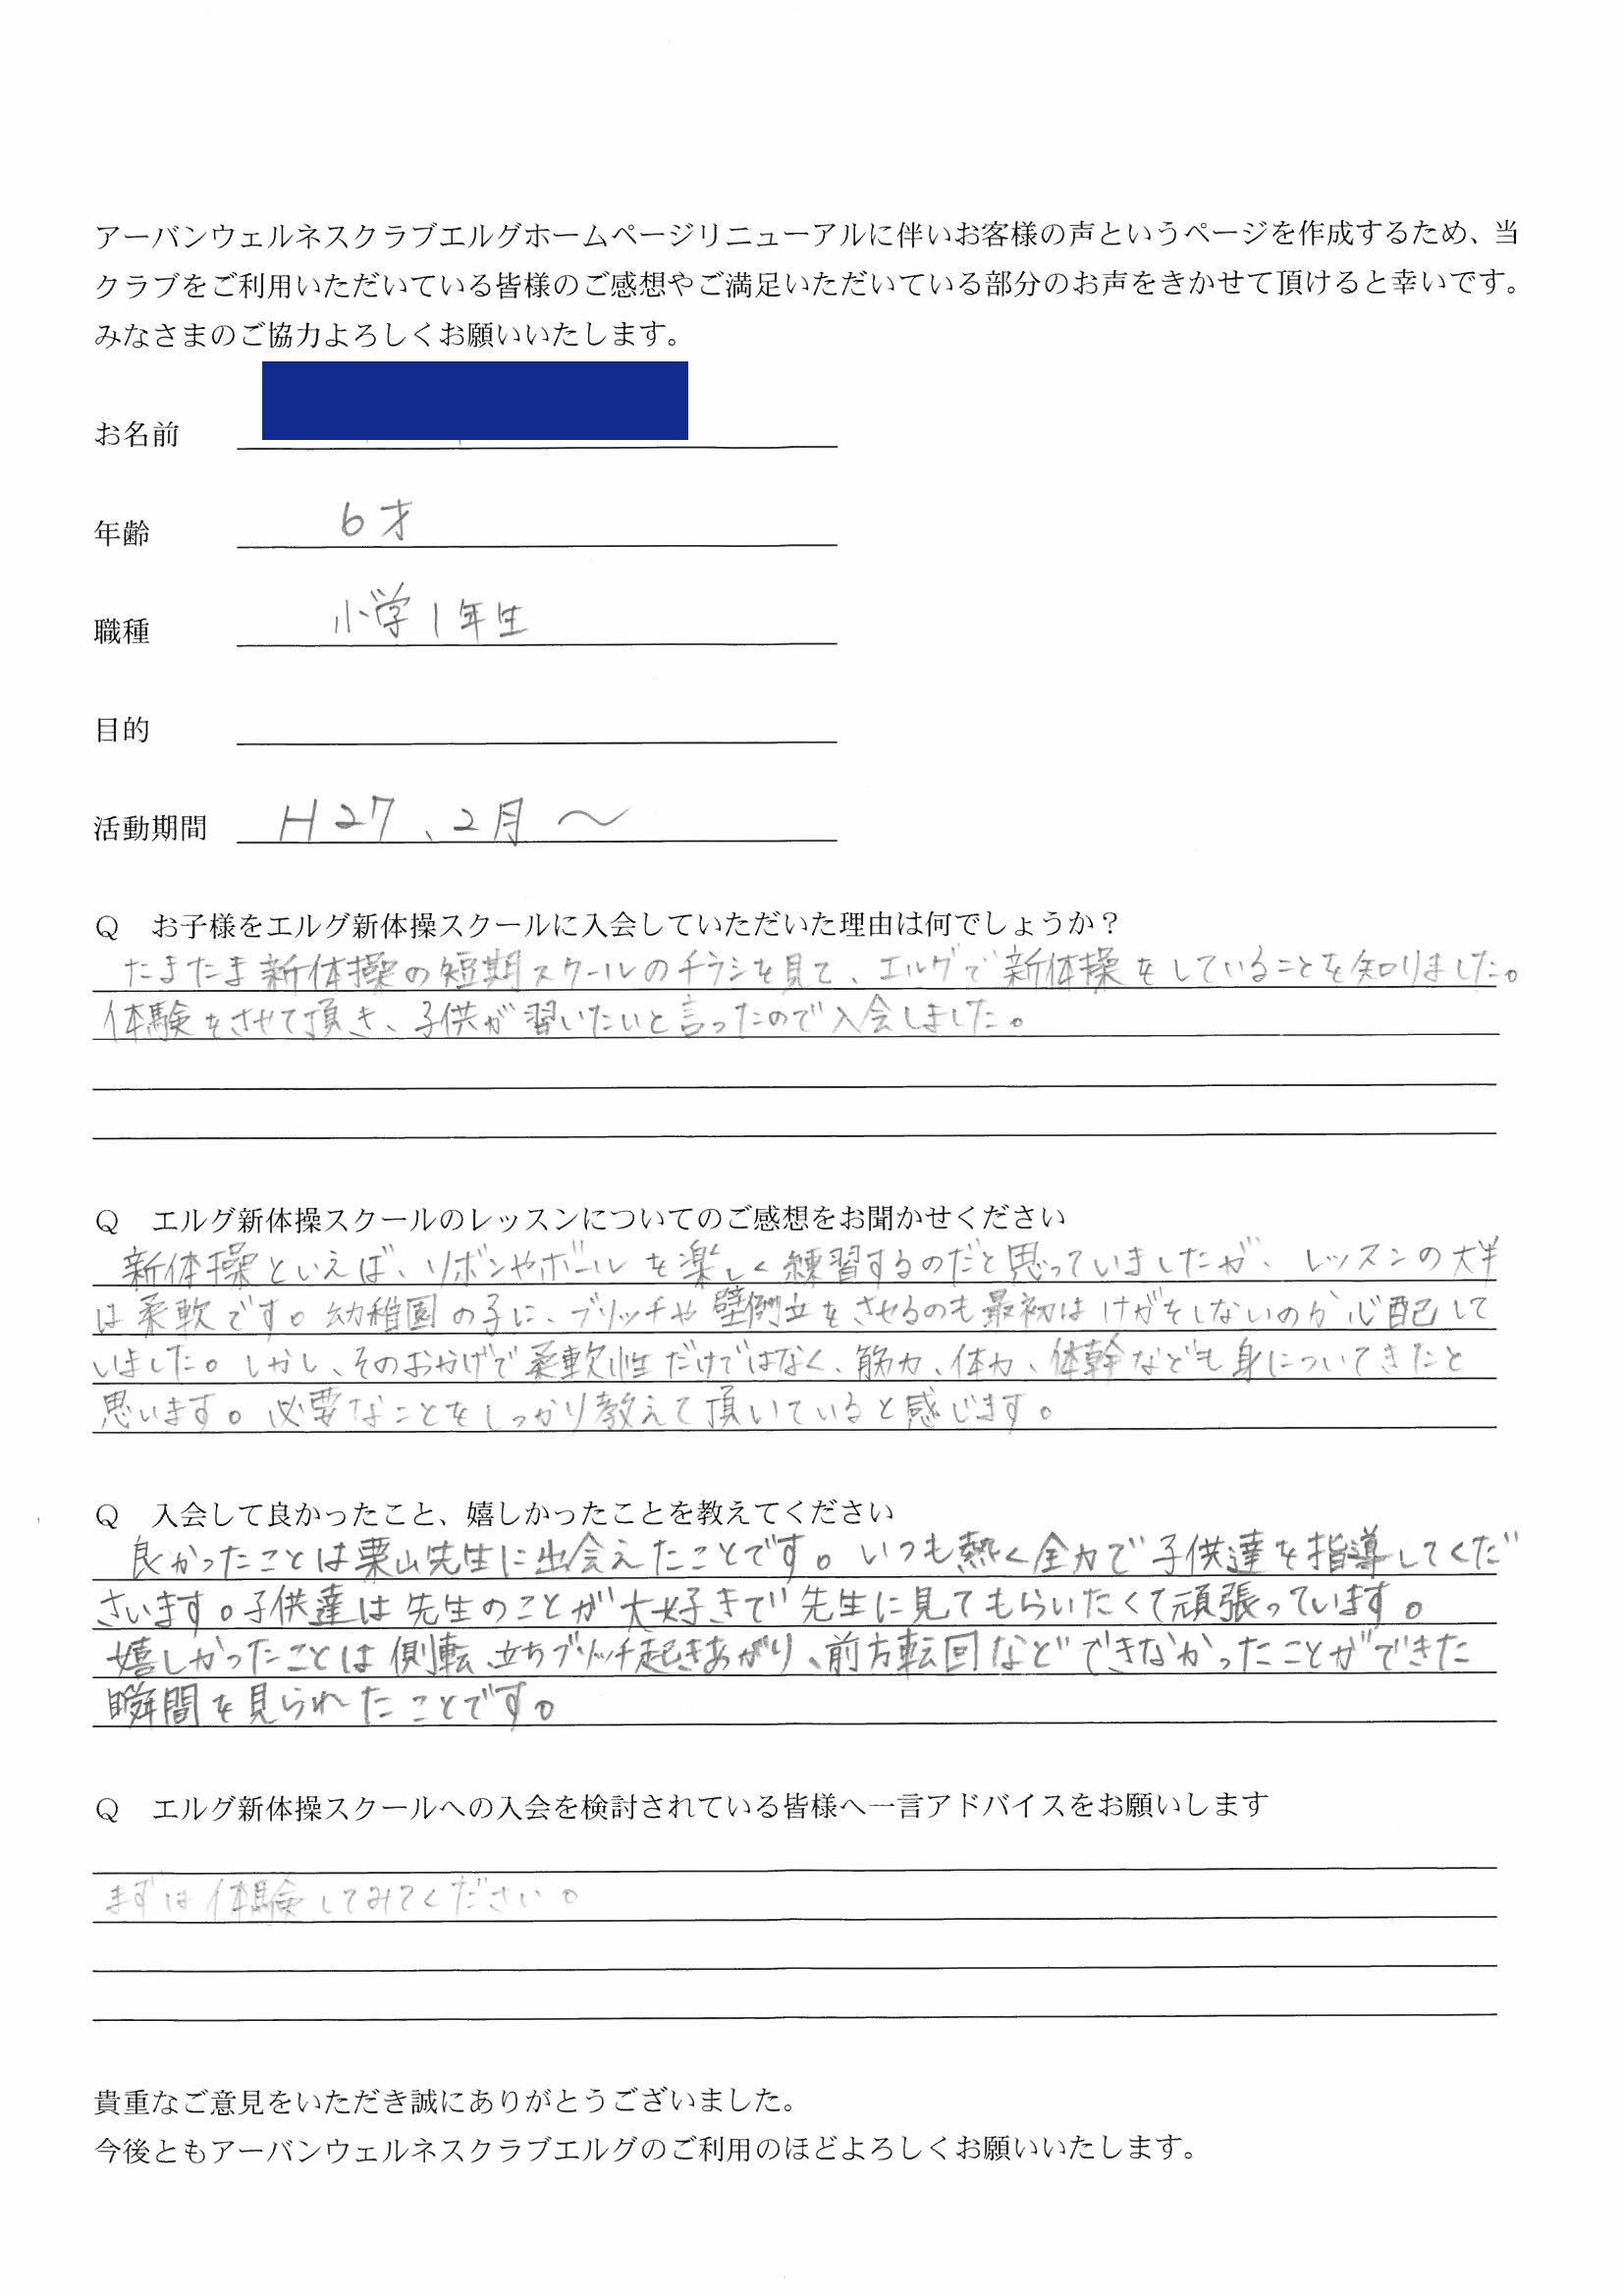 アーバンウェルネスクラブエルグホームページリニューアルに伴いお客様の声というページを作成するため、当
クラブをご利用いただいている皆様のご感想やご満足いただいている部分のお声をきかせて頂けると幸いです。
みなさまのご協力よろしくお願いいたします。
お名前
年齢 6才
職種 小学1年生
目的
活動期間 H27、2月〜
Q お子様をエルグ新体操スクールに入会していただいた理由は何でしょうか？
たまたま新体操の短期スクールのチラシを見て、エルグで新体操をしていることを知りました。
体験をさせて頂き、子供が習いたいと言ったので入会しました。
Q エルグ新体操スクールのレッスンについてのご感想をお聞かせください
新体操といえば、リボンやボールを楽しく練習するのだと思っていましたが、レッスンの大半
は柔軟です。幼稚園の子に、ブリッチや壁倒立をさせるのも最初はけがをしないのか心配して
いました。しかし、そのおかげで柔軟性だけではなく、筋力、体力、体幹なども身についてきたと
思います。必要なことをしっかり教えて頂いていると感じます。
Q 入会して良かったこと、嬉しかったことを教えてください
良かったことは栗山先生に出会えたことです。いつも熱く全力で子供達を指導してくだ
さいます。子供達は先生のことが大好きで先生に見てもらいたくて頑張っています。
嬉しかったことは側転、立ちブリッチ起きあがり、前方転回などできなかったことができた
瞬間を見られたことです。
Q エルグ新体操スクールへの入会を検討されている皆様へ一言アドバイスをお願いします
まずは体験してみてください。
貴重なご意見をいただき誠にありがとうございました。
今後ともアーバンウェルネスクラブエルグのご利用のほどよろしくお願いいたします。